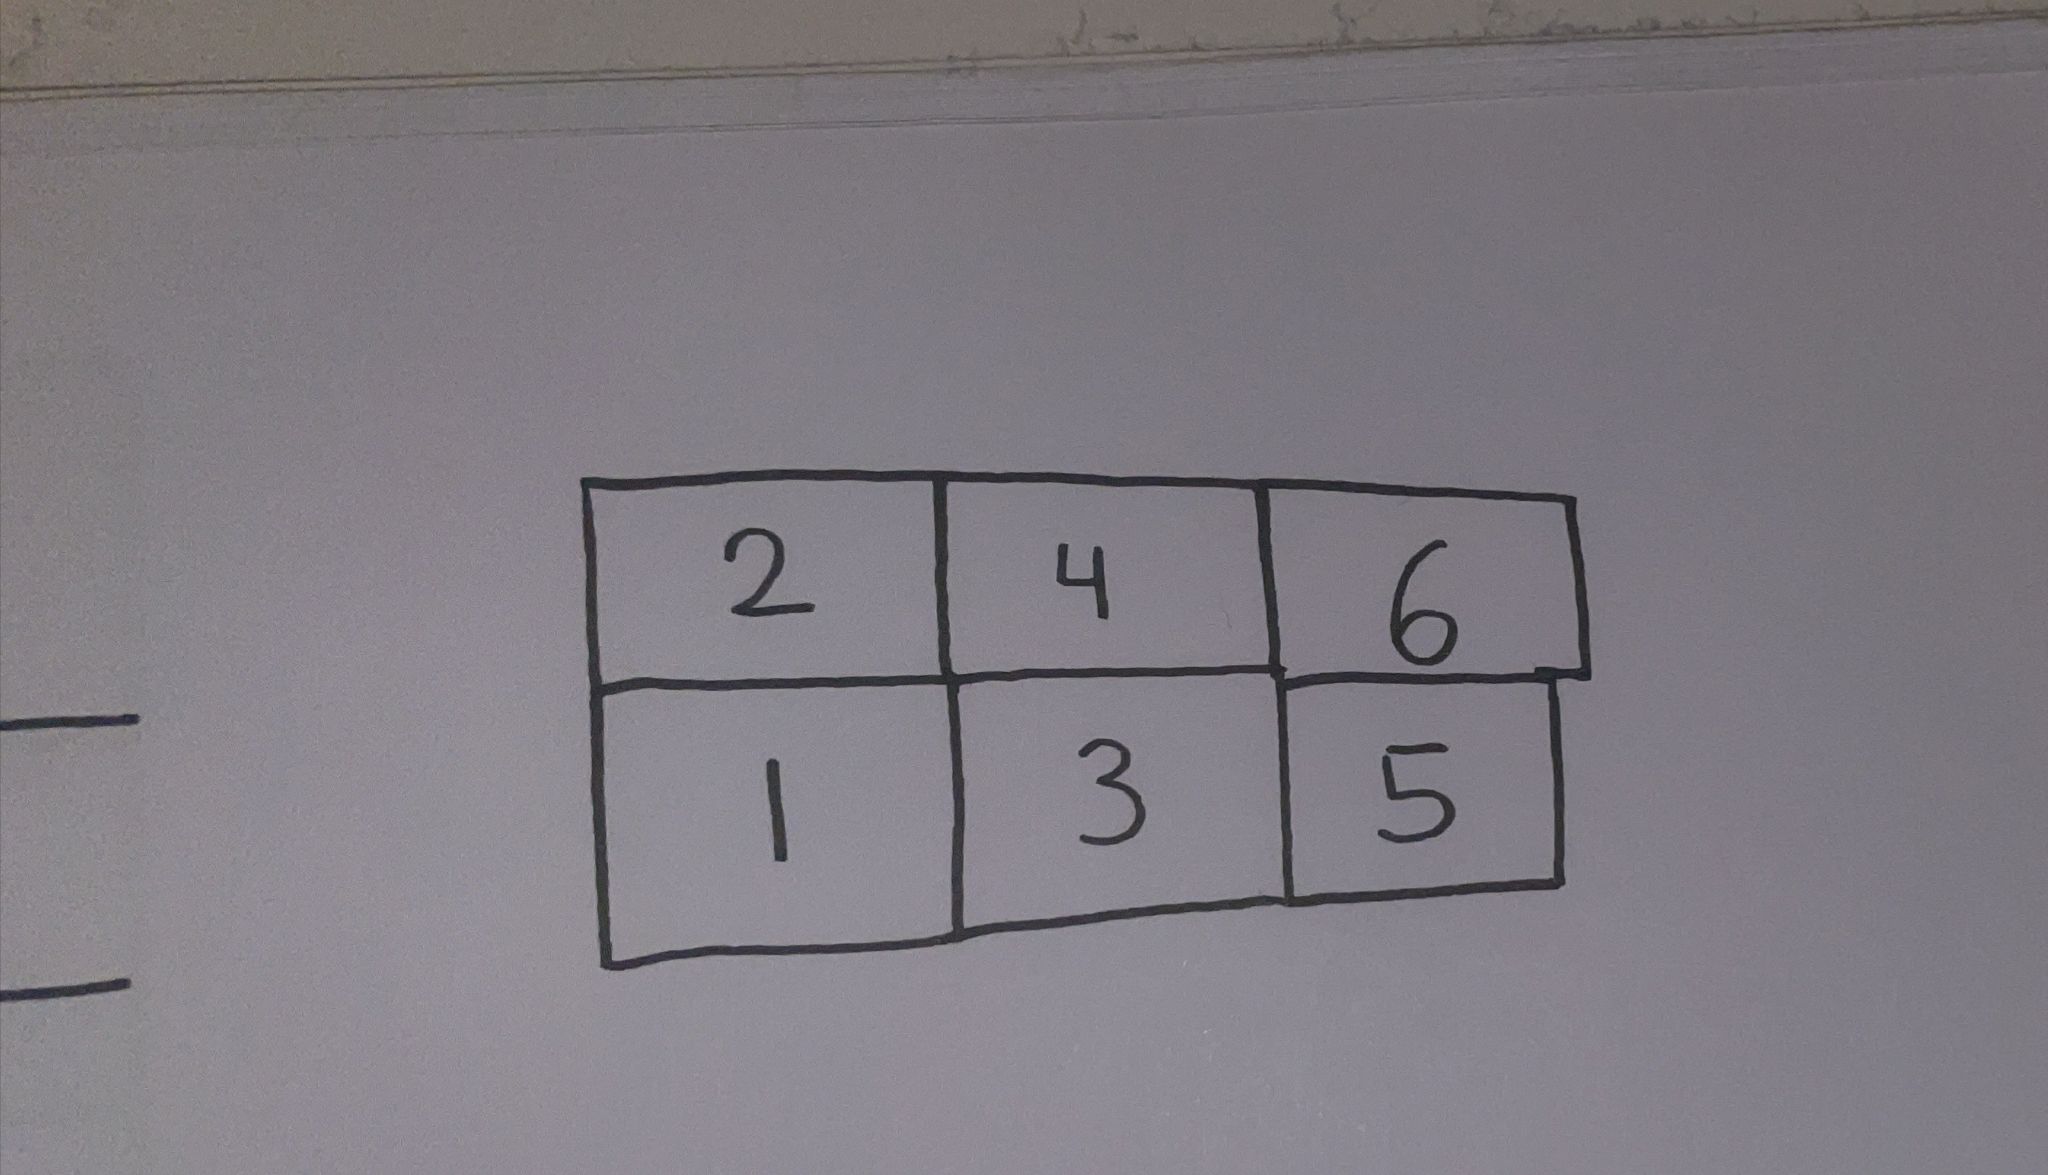 2 4 6
1 3 5